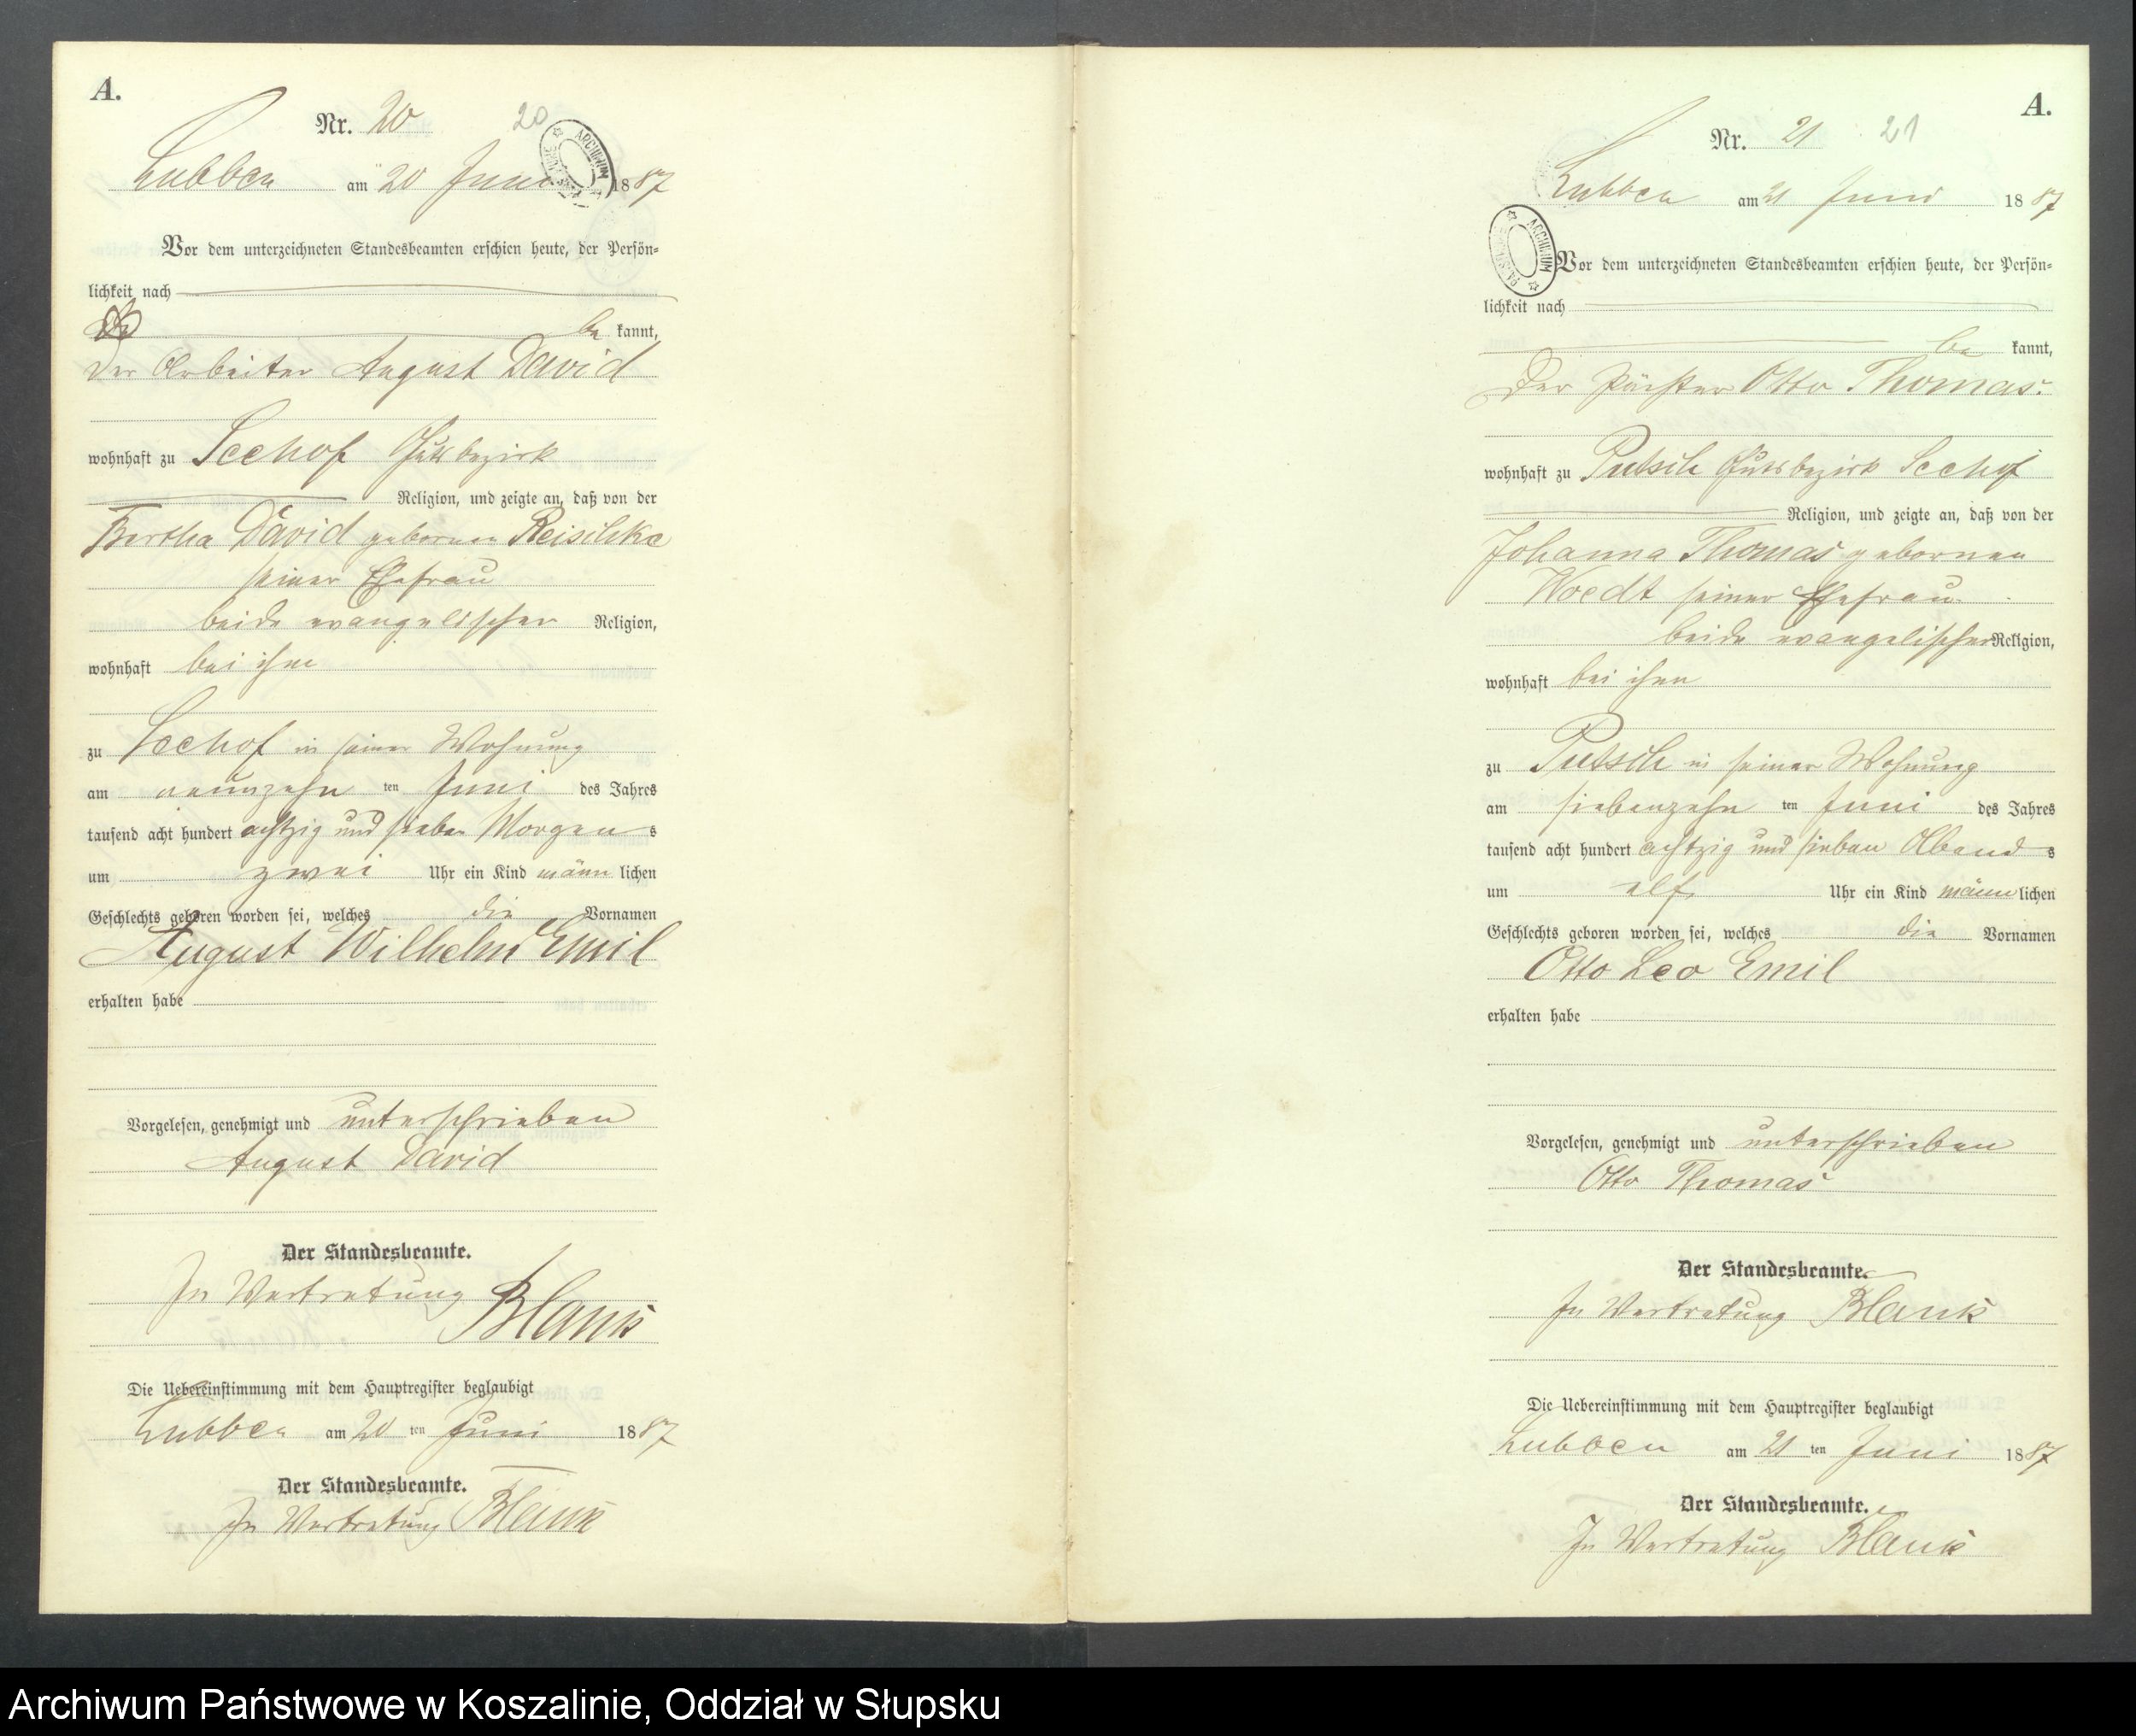 A.
Nr. 20
20
Lubben am 20 Juni 1887
Vor dem unterzeichneten Standesbeamten erschien heute, der Persön-
lichkeit nach
be kannt,
der Arbeiter August David
wohnhaft zu Seehof Gutsbezirk
Religion, und zeigte an, daß von der
Bertha David gebornen Reischke
seiner Ehefrau
beide evangelischer Religion,
wohnhaft bei ihm
zu Seehof in seiner Wohnung
am neunzehn ten Juni des Jahres
tausend acht hundert achtzig und sieben Morgens
um zwei Uhr ein Kind männlichen
Geschlechts geboren worden sei, welches die Vornamen
August Wilhelm Emil
erhalten habe
Vorgelesen, genehmigt und unterschrieben
August David
Der Standesbeamte.
In Vertretung Blank
Die Uebereinstimmung mit dem Hauptregister beglaubigt
Lubben am 20 ten Juni 1887
Der Standesbeamte.
In Vertretung Blank
A.
Nr. 21
21
Lubben am 21 Juni 1887
ARCHIWUM
Vor dem unterzeichneten Standesbeamten erschien heute, der Persön-
lichkeit nach
be kannt,
Der Otto Thomas.
wohnhaft zu Putsch Gutsbezirk Seehof
Religion, und zeigte an, daß von der
Johanna Thomas gebornen
Woedt seiner Ehefrau
beide evangelischer Religion,
wohnhaft bei ihm
zu Putsch in seiner Wohnung
am siebenzehn ten Juni des Jahres
tausend acht hundert achtzig und sieben Abends
um elf Uhr ein Kind männlichen
Geschlechts geboren worden sei, welches die Vornamen
Otto Leo Emil
erhalten habe
Vorgelesen, genehmigt und unterschrieben
Otto Thomas
Der Standesbeamte.
In Vertretung Blank
Die Uebereinstimmung mit dem Hauptregister beglaubigt
Lubben am 21 ten Juni 1887
Der Standesbeamte.
In Vertretung Blank
Archiwum Państwowe w Koszalinie, Oddział w Słupsku